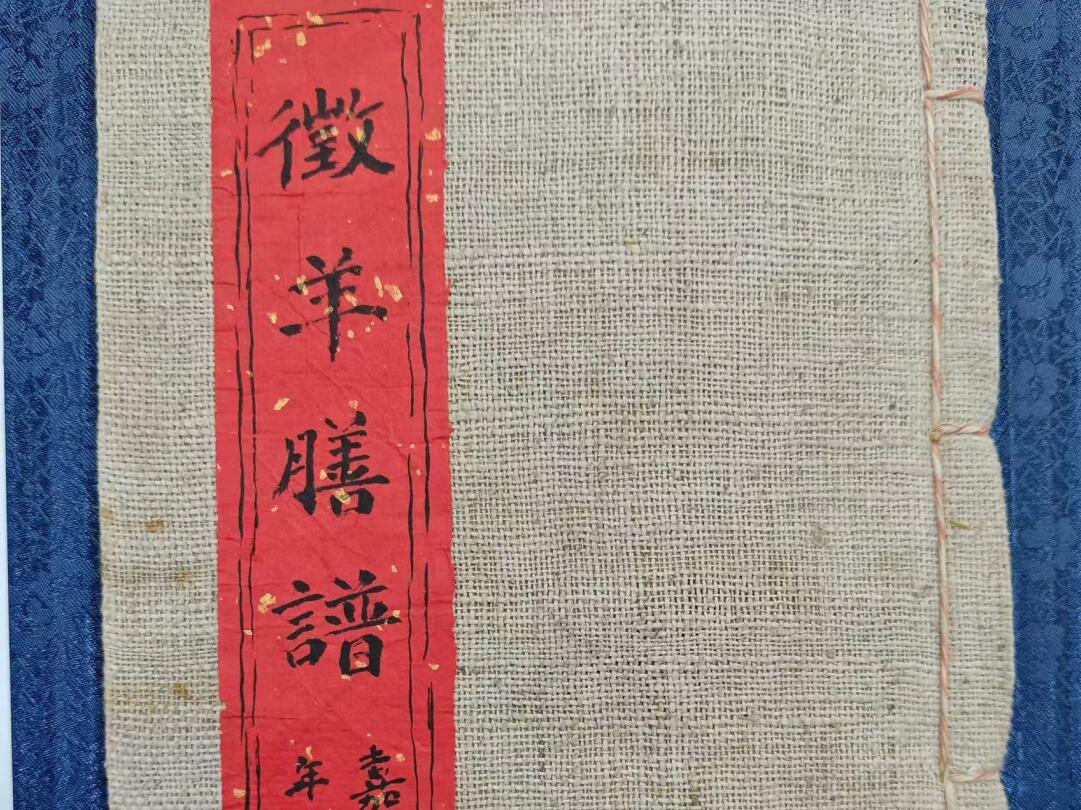 徵羊膳譜
嘉
年